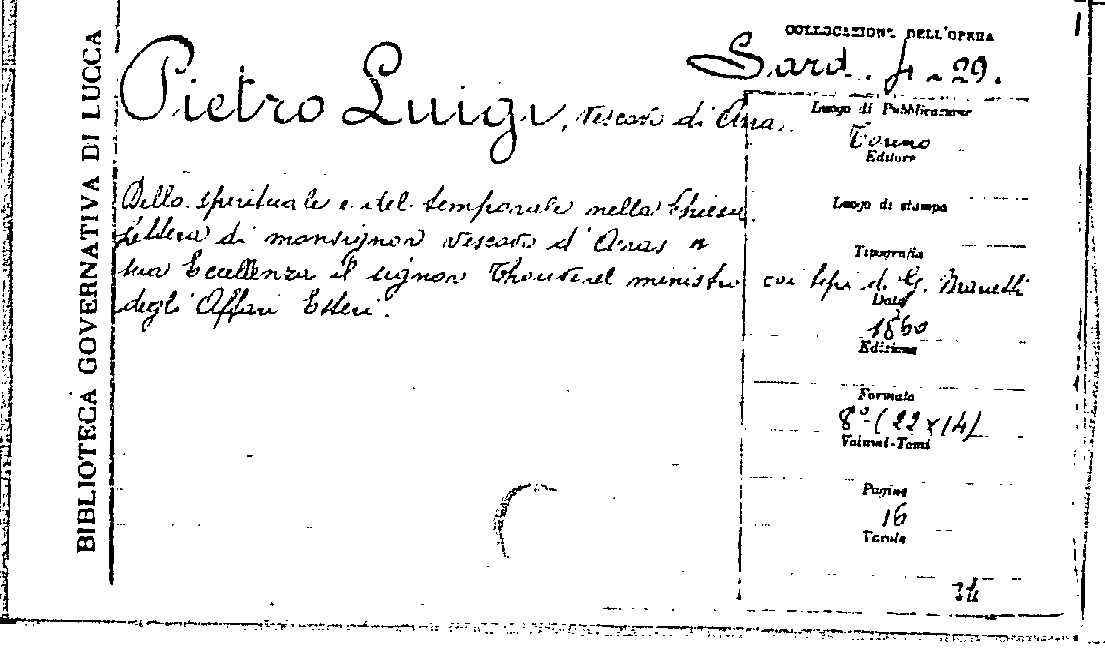 BIBLIOTECA GOVERNATIVA DI LUCCA
COLLOCAZIONE DELL'OPERA
Sard. 29.
Pietro Luigi, vescovo di Arras.
Dello spirituale e del temporale nella Chiesa.
Lettera di monsignor vescovo d'Arras a
sua Eccellenza il signor Thouvenel ministro
degli Affari Esteri.
Luogo di Pubblicazione
Torino
Editore
Luogo di stampa
Tipografia
coi tipi di G.
Data
1860
Edizione
Formato
8º-(22x14)
Volumi-Tomi
Pagine
16
Tavole